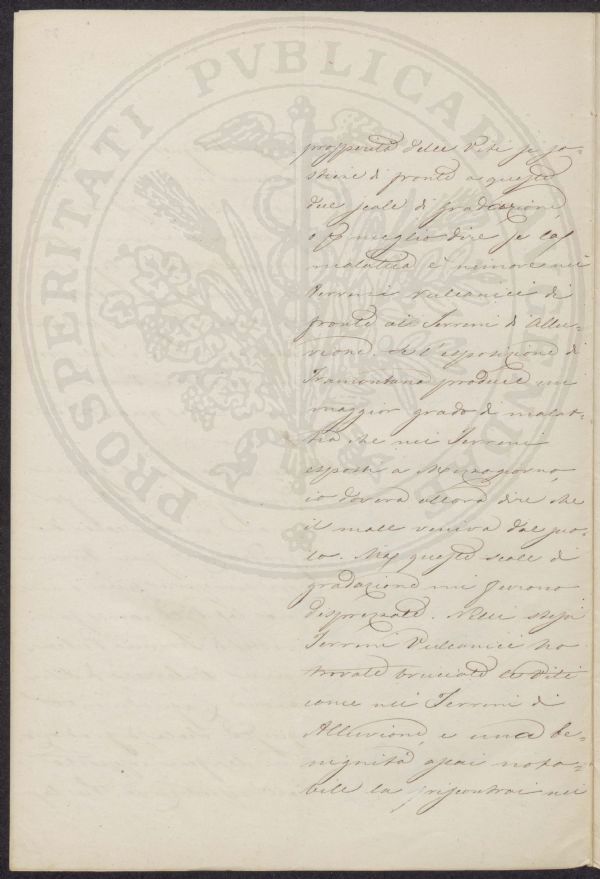 PROSPERITATI PUBLICAE AUGENDAE
prosperità delle Viti se so-
stiene di fronte a queste
due scale di gradazione,
o p meglio dire se la
malattia è minore nei
Terreni Vulcanici di
fronte ai Terreni di Allu-
vione. Se l'esposizione di
Tramontana produce un
maggior grado di malat-
tia che nei Terreni
esposti a Mezzogiorno,
io dovea allora dire che
il male veniva dal suo-
lo. Ma queste scale di
gradazione mi furono
disprezzate. Nelli stessi
Terreni Vulcanici ho
trovate bruciate le Viti
come nei Terreni di
Alluvione, e una be-
nignità assai nota-
bile la riscontrai nei